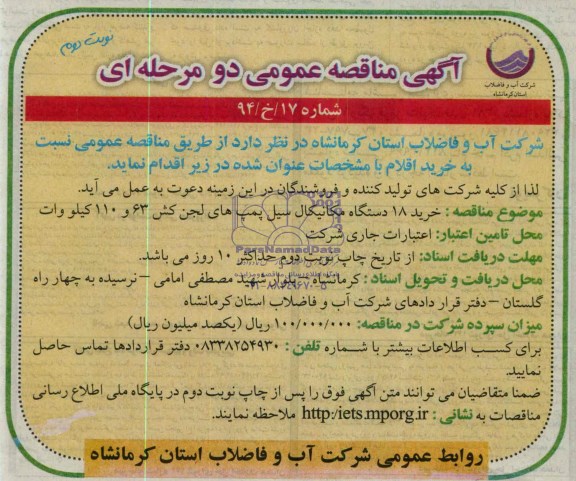 نوبت دوم
شرکت آب و فاضلاب
استان کرمانشاه
آگهی مناقصه عمومی دو مرحله ای
شماره ۱۷/خ/۹۴
شرکت آب و فاضلاب استان کرمانشاه در نظر دارد از طریق مناقصه عمومی نسبت
به خرید اقلام با مشخصات عنوان شده در زیر اقدام نماید.
لذا از کلیه شرکت های تولید کننده و فروشندگان در این زمینه دعوت به عمل می آید.
موضوع مناقصه : خرید ۱۸ دستگاه مکانیکال سیل پمپ های لجن کش ۶۳ و ۱۱۰ کیلو وات
محل تامین اعتبار: اعتبارات جاری شرکت
مهلت دریافت اسناد: از تاریخ چاپ نوبت دوم حداکثر ۱۰ روز می باشد.
محل دریافت و تحویل اسناد : کرمانشاه – بلوار شهید مصطفی امامی – نرسیده به چهار راه
گلستان – دفتر قرار دادهای شرکت آب و فاضلاب استان کرمانشاه
میزان سپرده شرکت در مناقصه: ۱۰۰/۰۰۰/۰۰۰ ریال (یکصد میلیون ریال)
برای کسب اطلاعات بیشتر با شماره تلفن : ۰۸۳۳۸۲۵۴۹۳۰ دفتر قراردادها تماس حاصل
نمایید.
ضمنا متقاضیان می توانند متن آگهی فوق را پس از چاپ نوبت دوم در پایگاه ملی اطلاع رسانی
مناقصات به نشانی : http:/iets.mporg.ir ملاحظه نمایند.
روابط عمومی شرکت آب و فاضلاب استان کرمانشاه
ParsNamadData